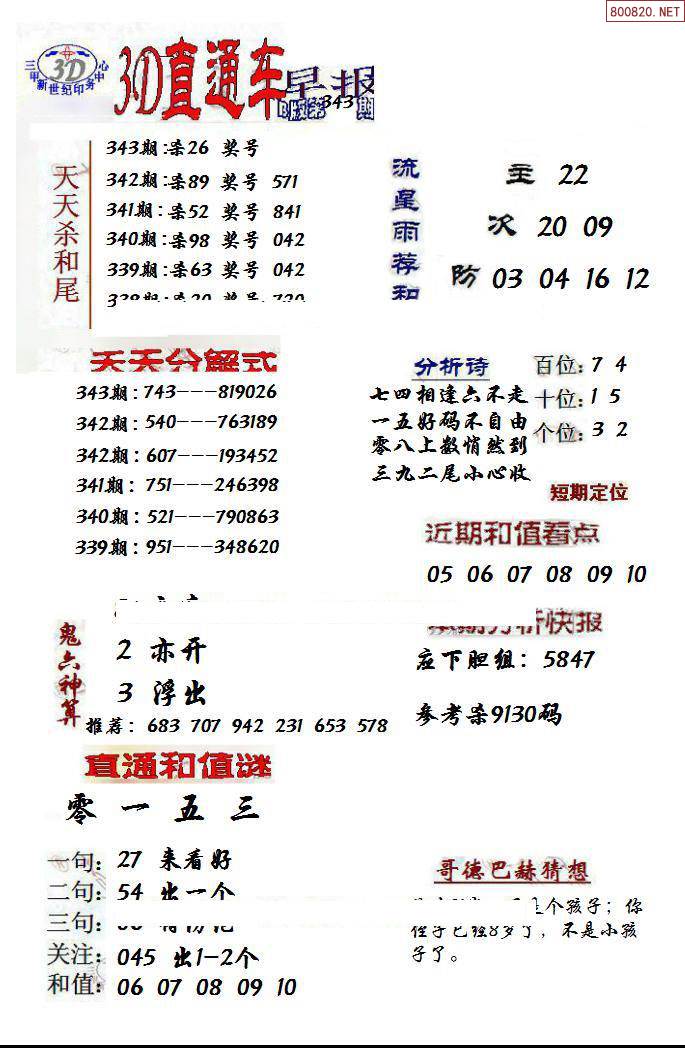 800820.NET
三甲 3D 中心
新世纪印务
3D直通车
早报
343期
天天杀和尾
343期:杀26 奖号
342期:杀89 奖号 571
341期:杀52 奖号 841
340期:杀98 奖号 042
339期:杀63 奖号 042
流星雨荐和
主 22
次 20 09
防 03 04 16 12
天天分解式
343期:743---819026
342期:540---763189
342期:607---193452
341期:751---246398
340期:521---790863
339期:951---348620
分析诗
七四相逢六不走
一五好码不自由
零八上数悄然到
三九二尾小心收
百位:7 4
十位:1 5
个位:3 2
短期定位
近期和值看点
05 06 07 08 09 10
鬼六神算
2 亦开
3 浮出
推荐: 683 707 942 231 653 578
分析快报
应下胆组: 5847
参考杀9130码
直通和值谜
零 一 五 三
一句: 27 来看好
二句: 54 出一个
三句:
关注: 045 出1-2个
和值: 06 07 08 09 10
哥德巴赫猜想
个孩子; 你
侄子已经8岁了, 不是小孩
子了。